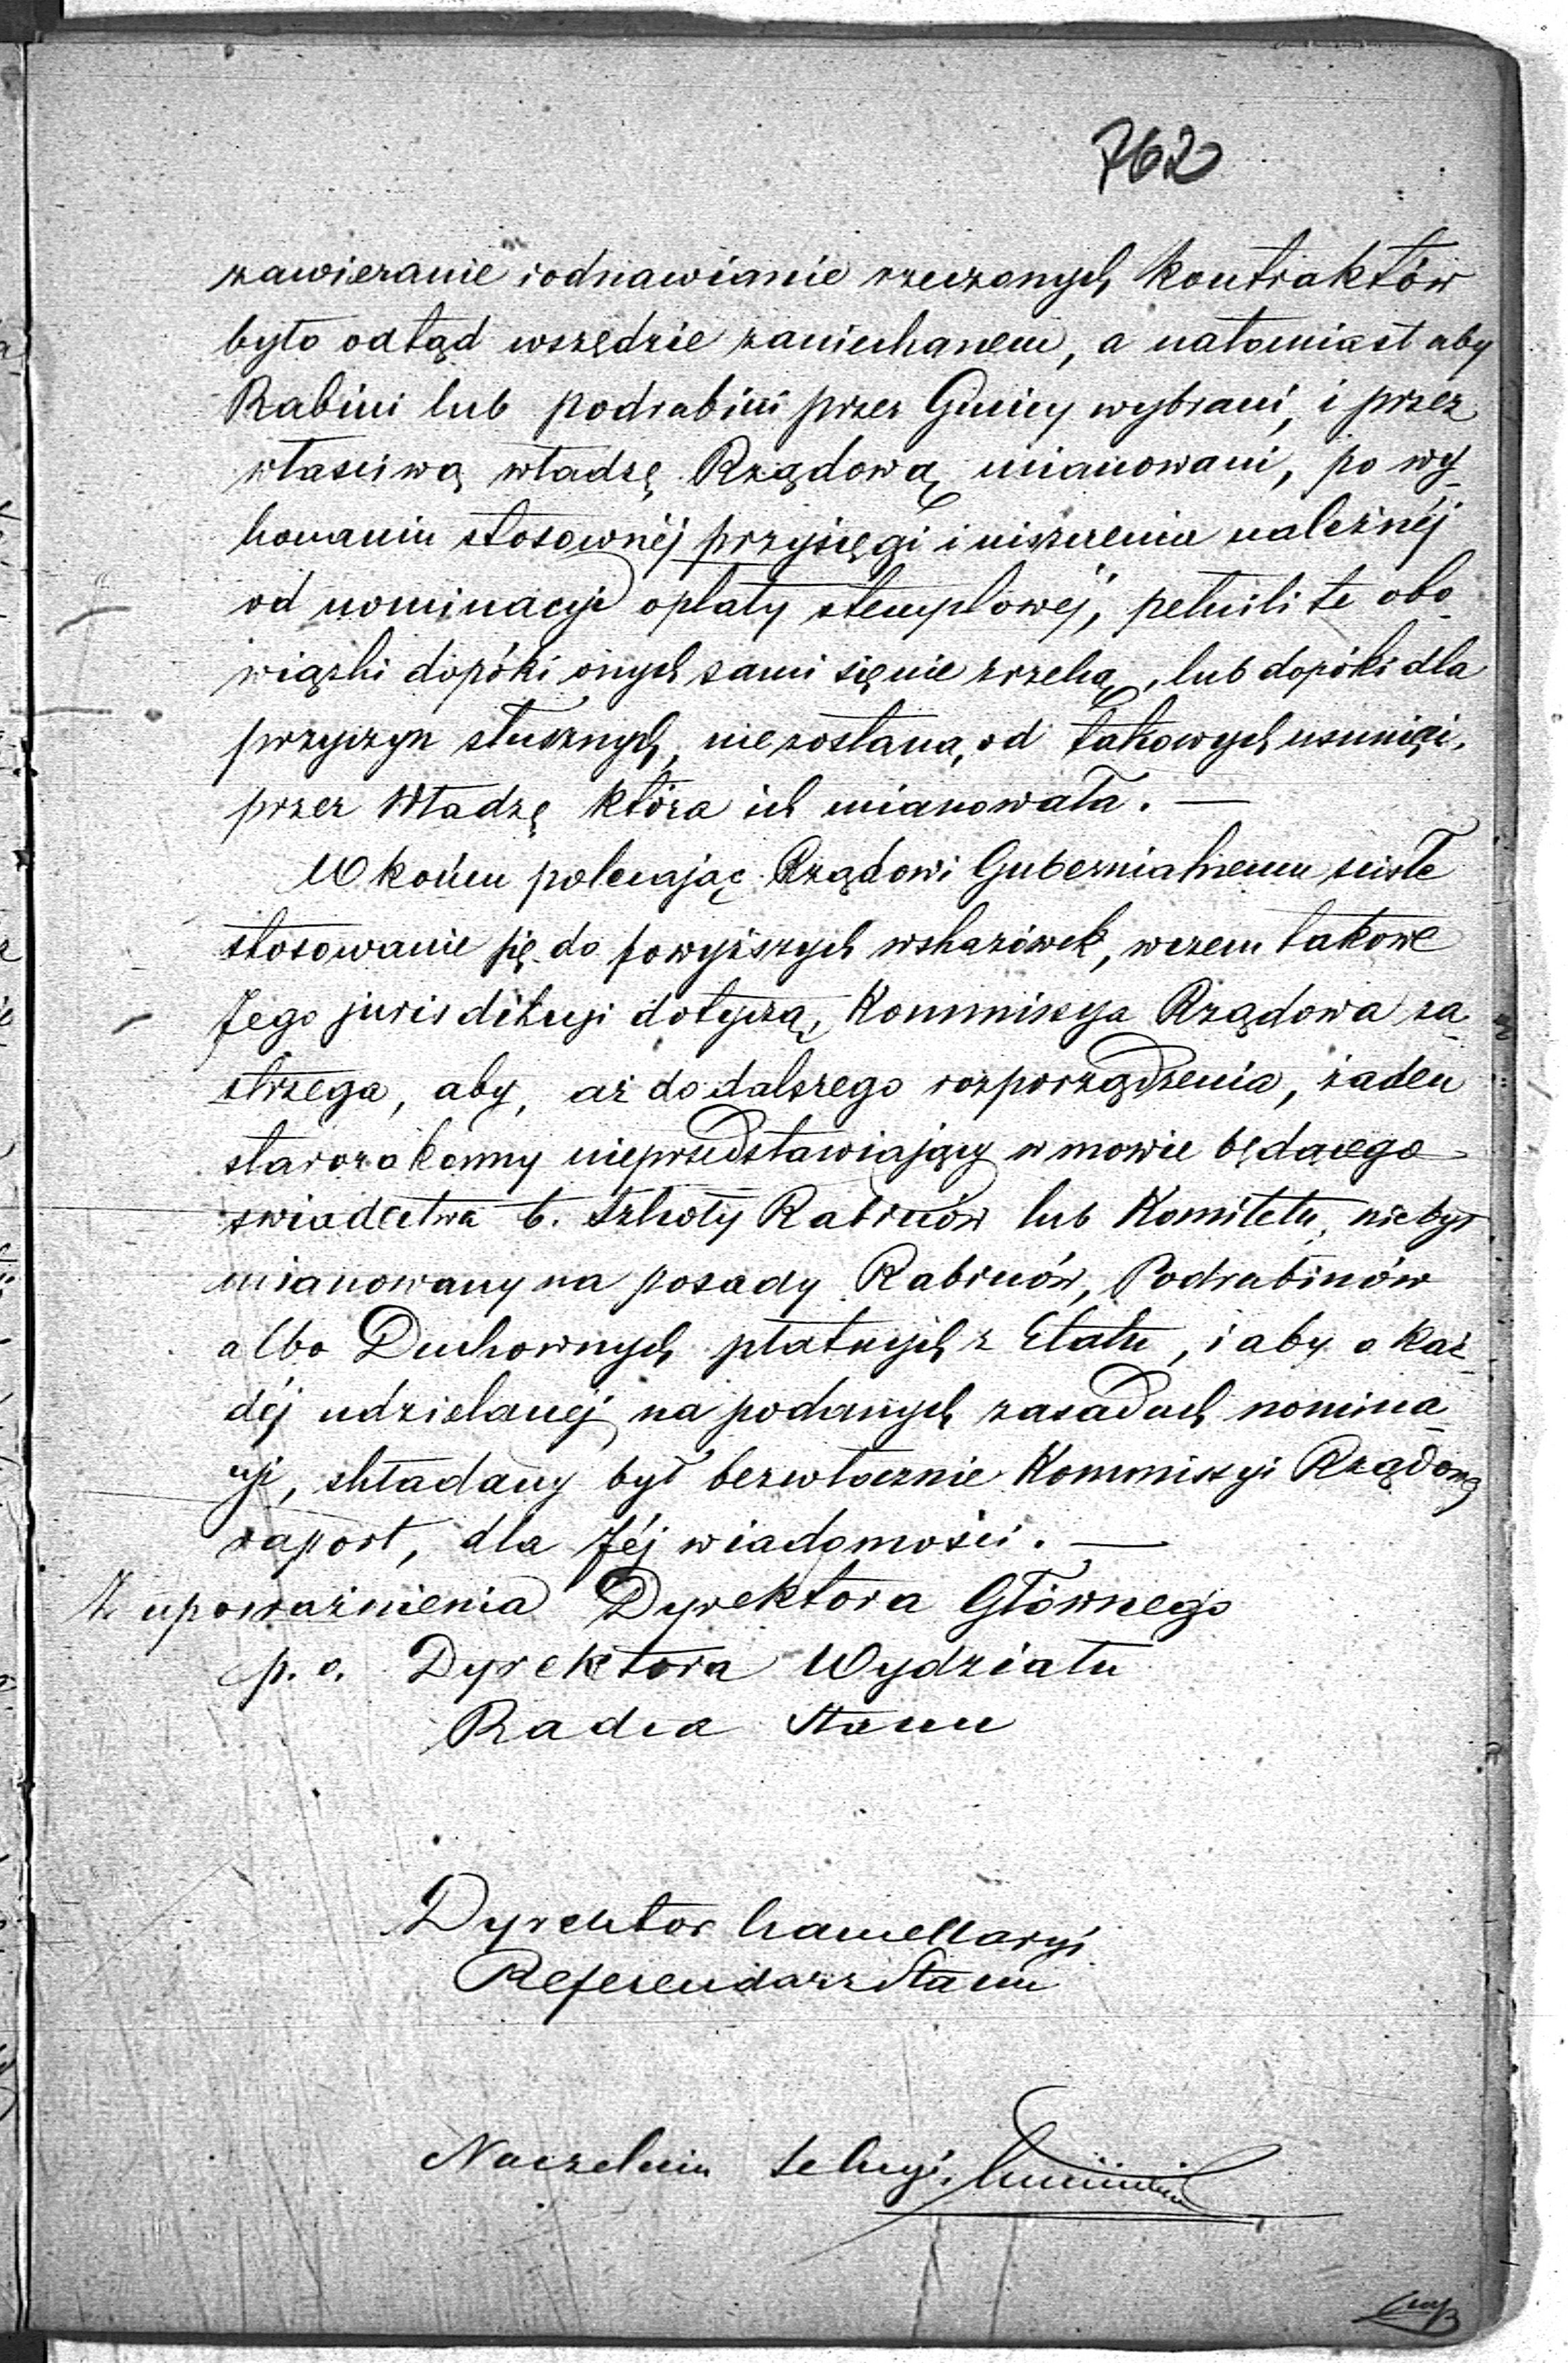 762
zawieranie i odnawianie rzeczonych kontraktów
było odtąd wszędzie zaniechanem, a natomiast aby
Rabini lub podrabini przez Gminy wybrani, i przez
właściwą władzę Rządową mianowani, po wy-
konaniu stosownéj przysięgi i uiszczeniu należnéj
od nominacyi opłaty stemplowéj, pełnili te obo-
wiązki dopóki onych sami się nie zrzeką, lub dopóki dla
przyczyn słusznych, nie zostaną, od takowych usunięci,
przez Władzę która ich mianowała. —
W końcu polecając Rządowi Gubernialnemu ścisłe
stosowanie się do powyższych wskazówek, w czem takowe
Jego jurisdikcyi dotyczą, Kommissya Rządowa za-
strzega, aby, aż do dalszego rozporządzenia, żaden
starozakonny nieprzedstawiający w mowie będącego
świadectwa b. Szkoły Rabinów lub Komitetu, nie był
mianowany na posady Rabinów, Podrabinów
albo Duchownych płatnych z Etatu, i aby o każ-
déj udzielanéj na podanych zasadach nomina-
cyi, składany był bezwłocznie Kommissyi Rządowéj
raport, dla Jéj wiadomości. —
Z upoważnienia Dyrektora Głównego
p. o. Dyrektora Wydziału
Radca Stanu
Dyrektor Kancellaryi
Referendarz Stanu
Naczelnik Sekcyi